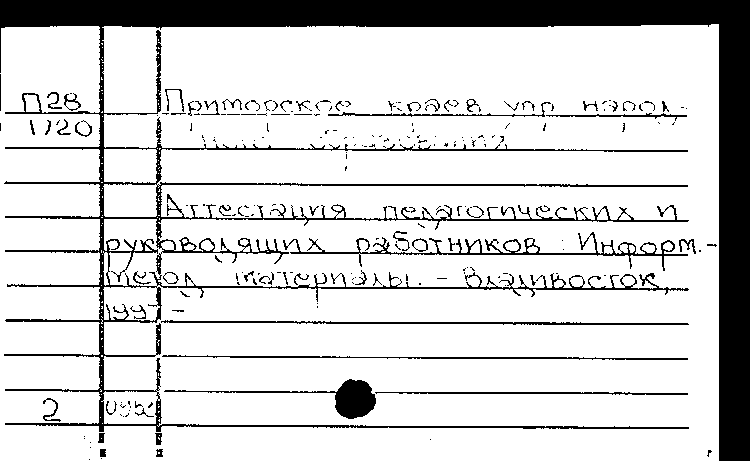 П28 Приморское краев. упр. народ-
1720 ного образования
Аттестация педагогических и
руководящих работников : Информ.-
метод. материалы. - Владивосток,
1997 -
2